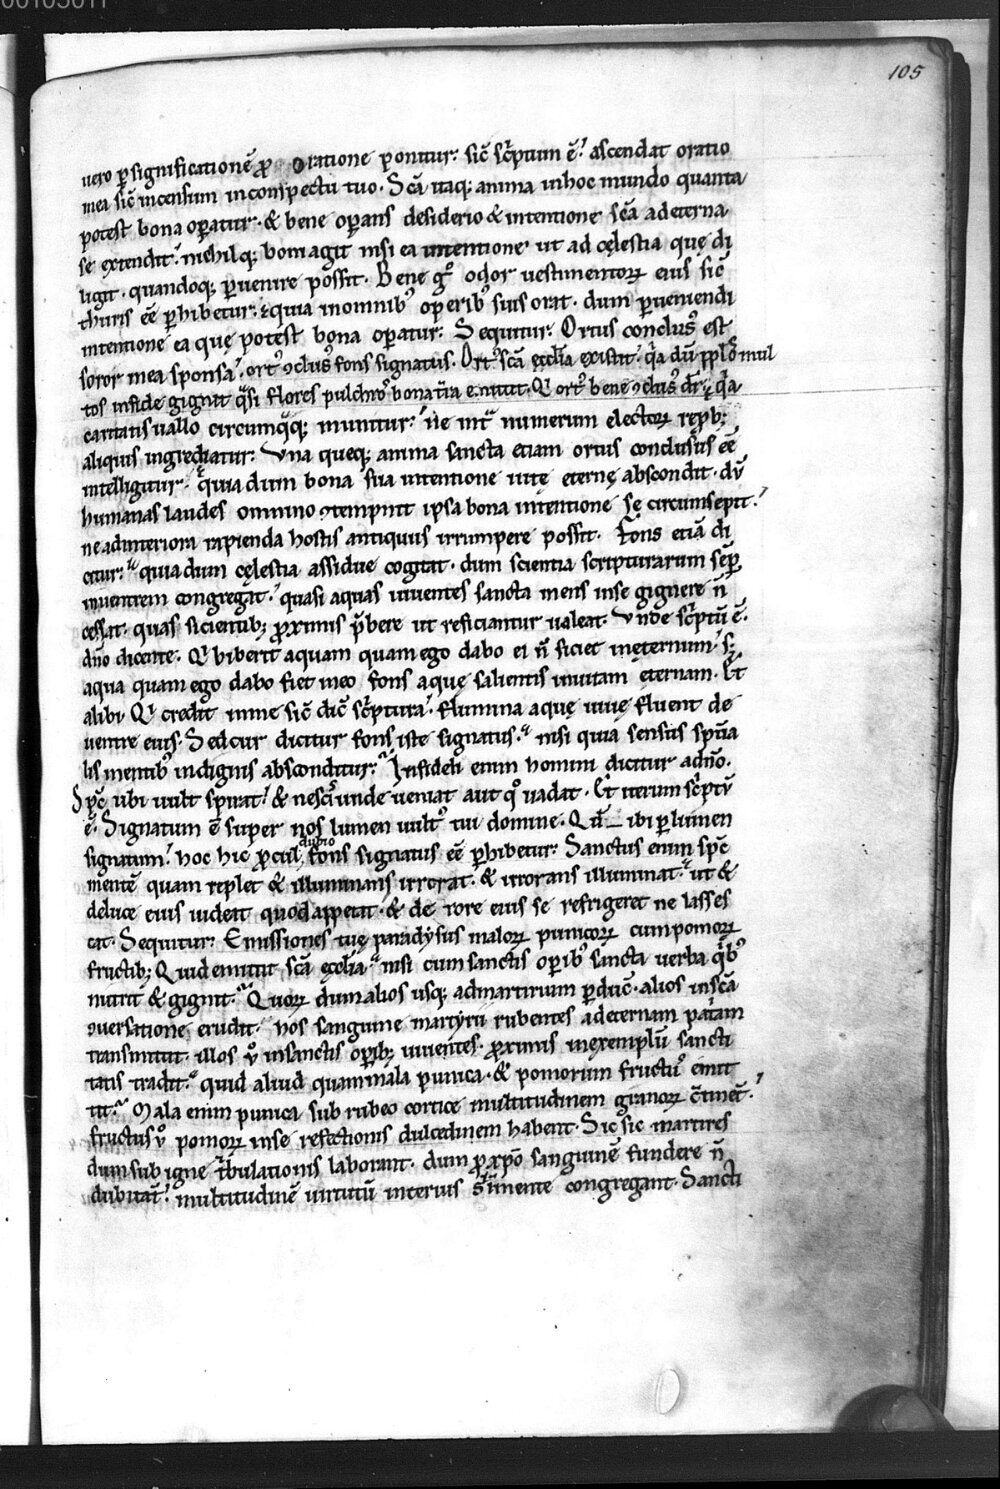 105
uero ꝑ significationē ꝓ oratione ponitur. sic̄ sc̄ptum ē. ascendat oratio
mea sic̄ incensum in conspectu tuo. Sc̄a itaq; anima in hoc mundo quanta
potest bona oꝑatur. & bene oꝑans desiderio & intentione sc̄a ad eterna
se extendit. nichilq; boni agit nisi ea intentione ut ad cęlestia quę di
ligit. quandoq; ꝑuenire possit. Bene gͦ odor uestimentoꝝ eius sic̄
thuris eē ꝑhibetur. quia in omnibꝰ operibꝰ suis orat. dum ꝑueniendi
intentione ea quę potest bona oꝑatur. Sequitur. Ortus conclusꝰ est
soror mea sponsa. ortꝰ ꝯclusꝰ fons signatus. Ortꝰ sc̄a ęcclīa existit. q̇a dū ꝓplōs mul
tos in fide gignit q̇si flores pulchros bona tr̄a emittit. Qͥ ortꝰ bene ꝯclusꝰ dr̄. q̇a
caritatis uallo circumq̇q; munitur. ne int̄ numerum electoꝝ reꝓb;
aliquis ingrediatur. Vna queq; anima sancta etiam ortus conclusus eē
intelligitur. quia dum bona sua intentione uitę eternę abscondit. dū
humanas laudes omnino ꝯtempnit ipsa bona intentione sę circumsepit.
ne ad interiora rapienda hostis antiquus irrumpere possit. Fons etiā di
citur. quia dum cęlestia assidue cogitat. dum scientia scripturarum semꝑ
in uentrem congregat. quasi aquas uiuentes sancta mens in se gignere n̄
cessat. quas sicientib; ꝓximis p̄bere ut reficiantur ualeat. Vnde sc̄ptū ē.
dn̄o dicente. Qͥ biberit aquam quam ego dabo ei n̄ siciet in ęternum. s;
aqua quam ego dabo fiet in eo fons aquę salientis in uitam ęternam. Et
alibi. Qͥ credit in me sic̄ dic̄ sc̄ptura. Flumina aquę uiuę fluent de
uentre eius. Sed cur dicitur fons iste signatus. nisi quia sensus sp̄ita
lis mentibꝰ indignis absconditur. Infideli enim homini dicitur a dn̄o.
Sp̄c ubi uult spirat. & nescit unde ueniat aut qͦ uadat. Et iterum sc̄ptū
ē. Signatum ē super nos lumen uultꝰ tui domine. Qd̄ ibi ꝑ lumen
signatum. hoc hic ꝓcul dubio fons signatus eē ꝑhibetur. Sanctus enim sp̄c
mentē quam replet & illuminans irrorat. & irrorans illuminat. ut &
de luce eius uideat quod appetat. & de rore eius se refrigeret ne lasses
cat. Sequitur. Emissiones tuę paradysus maloꝝ punicoꝝ cum pomoꝝ
fructib; Quid emittit sc̄a ęcclīa nisi cum sanctis oꝑibꝰ sancta uerba q̇bꝰ
nutrit & gignit. Quoꝝ dum alios usq; ad martirium ꝑducit. alios in sc̄a
ꝯuersatione erudit. hos sanguine martyrii rubentes ad eternam patriam
transmittit. illos ꝟ in sanctis oꝑib; uiuentes. ꝓximis in exemplū sancti
tatis tradit. quid aliud quam mala punica. & pomorum fructꝰ emit
tit. Mala enim punica sub rubeo cortice multitudinem granoꝝ c̄tinet.
fructus ꝟ pomoꝝ in se refectionis dulcedinem habent. Sic sic martires
dum sub igne t̄bulationis laborant. dum ꝓ xp̄o sanguinē fundere n̄
dubitāt. multitudinē uirtutū interius congregant. Sancti